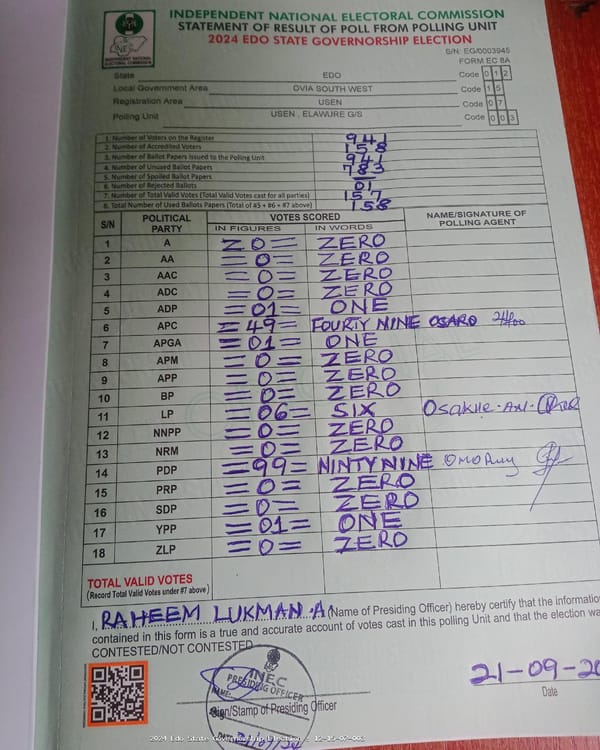 INDEPENDENT NATIONAL ELECTORAL COMMISSION
STATEMENT OF RESULT OF POLL FROM POLLING UNIT
2024 EDO STATE GOVERNORSHIP ELECTION
INEC
INDEPENDENT NATIONAL ELECTORAL COMMISSION
S/N: EG/0003945
FORM EC 8A
State EDO Code 0 1 2
Local Government Area OVIA SOUTH WEST Code 1 5
Registration Area USEN Code 0 7
Polling Unit USEN , ELAWURE G/S Code 0 0 3
1. Number of Voters on the Register 941
2. Number of Accredited Voters 158
3. Number of Ballot Papers Issued to the Polling Unit 941
4. Number of Unused Ballot Papers 783
5. Number of Spoiled Ballot Papers
6. Number of Rejected Ballots 01
7. Number of Total Valid Votes (Total Valid Votes cast for all parties) 157
8. Total Number of Used Ballots Papers (Total of #5 + #6 + #7 above) 158
S/N POLITICAL PARTY VOTES SCORED NAME/SIGNATURE OF POLLING AGENT
IN FIGURES IN WORDS
1 A =0= ZERO
2 AA =0= ZERO
3 AAC =0= ZERO
4 ADC =0= ZERO
5 ADP =01= ONE
6 APC =49= FOURTY NINE OSARO
7 APGA =01= ONE
8 APM =0= ZERO
9 APP =0= ZERO
10 BP =0= ZERO
11 LP =06= SIX
12 NNPP =0= ZERO
13 NRM =0= ZERO
14 PDP =99= NINTYNINE
15 PRP =0= ZERO
16 SDP =0= ZERO
17 YPP =01= ONE
18 ZLP =0= ZERO
TOTAL VALID VOTES
(Record Total Valid Votes under #7 above)
I, RAHEEM LUKMAN .A (Name of Presiding Officer) hereby certify that the information
contained in this form is a true and accurate account of votes cast in this polling Unit and that the election was
CONTESTED/NOT CONTESTED
INEC
PRESIDING OFFICER
NAME:
21-09-20
Sign/Stamp of Presiding Officer
Date
2024 Edo State Governorship Election - 12-15-07-003